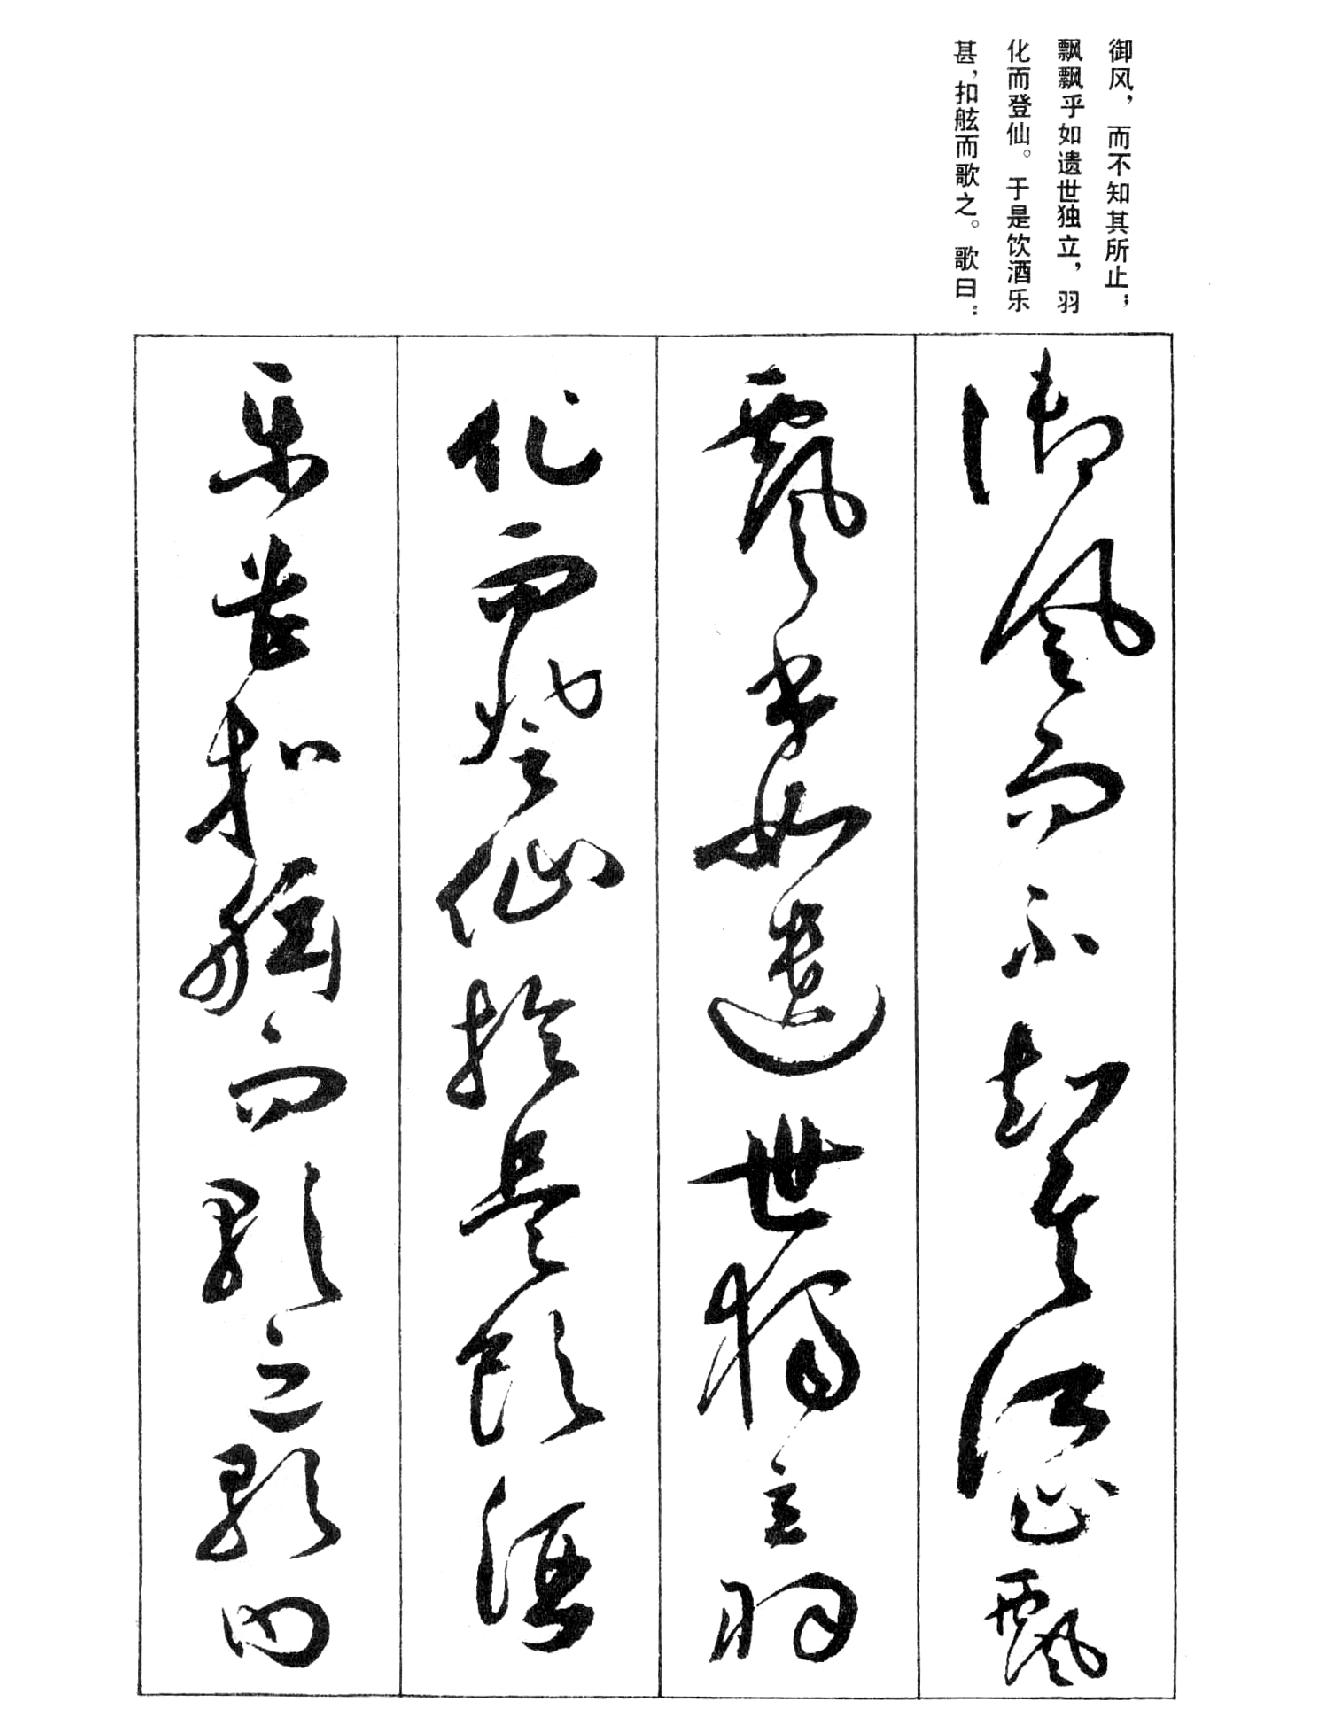 御风，而不知其所止；
飘飘乎如遗世独立，羽
化而登仙。于是饮酒乐
甚，扣舷而歌之。歌曰：
御風而不知其所止飄
飄乎如遺世獨立羽
化而登仙於是飲酒
樂甚扣舷而歌之歌曰